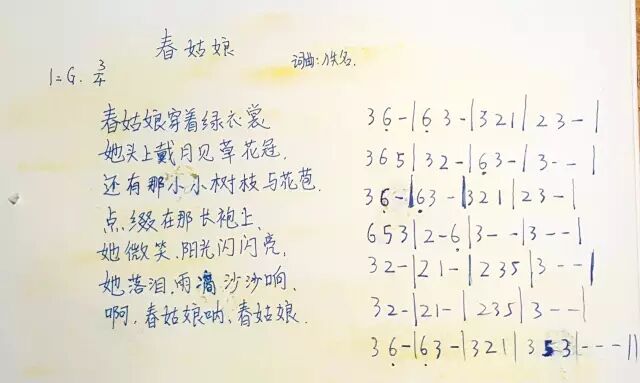 春姑娘
词曲:佚名.
1=G. 3/4
春姑娘穿着绿衣裳 3 6̣ - | 6̣ 3 - | 3 2 1 | 2 3 - |
她头上戴月见草花冠. 3 6 5 | 3 2 - | 6̣ 3 - | 3 - - |
还有那小小树枝与花苞. 3 6̣ - | 6̣ 3 - | 3 2 1 | 2 3 - |
点缀在那长袍上. 6 5 3 | 2 - 6̣ | 3 - - | 3 - - |
她微笑.阳光闪闪亮. 3 2 - | 2 1 - | 2 3 5 | 3 - - |
她落泪.雨滴沙沙响. 3 2 - | 2 1 - | 2 3 5 | 3 - - |
啊.春姑娘呐.春姑娘. 3 6̣ - | 6̣ 3 - | 3 2 1 | 3 5 3 | - - - ||